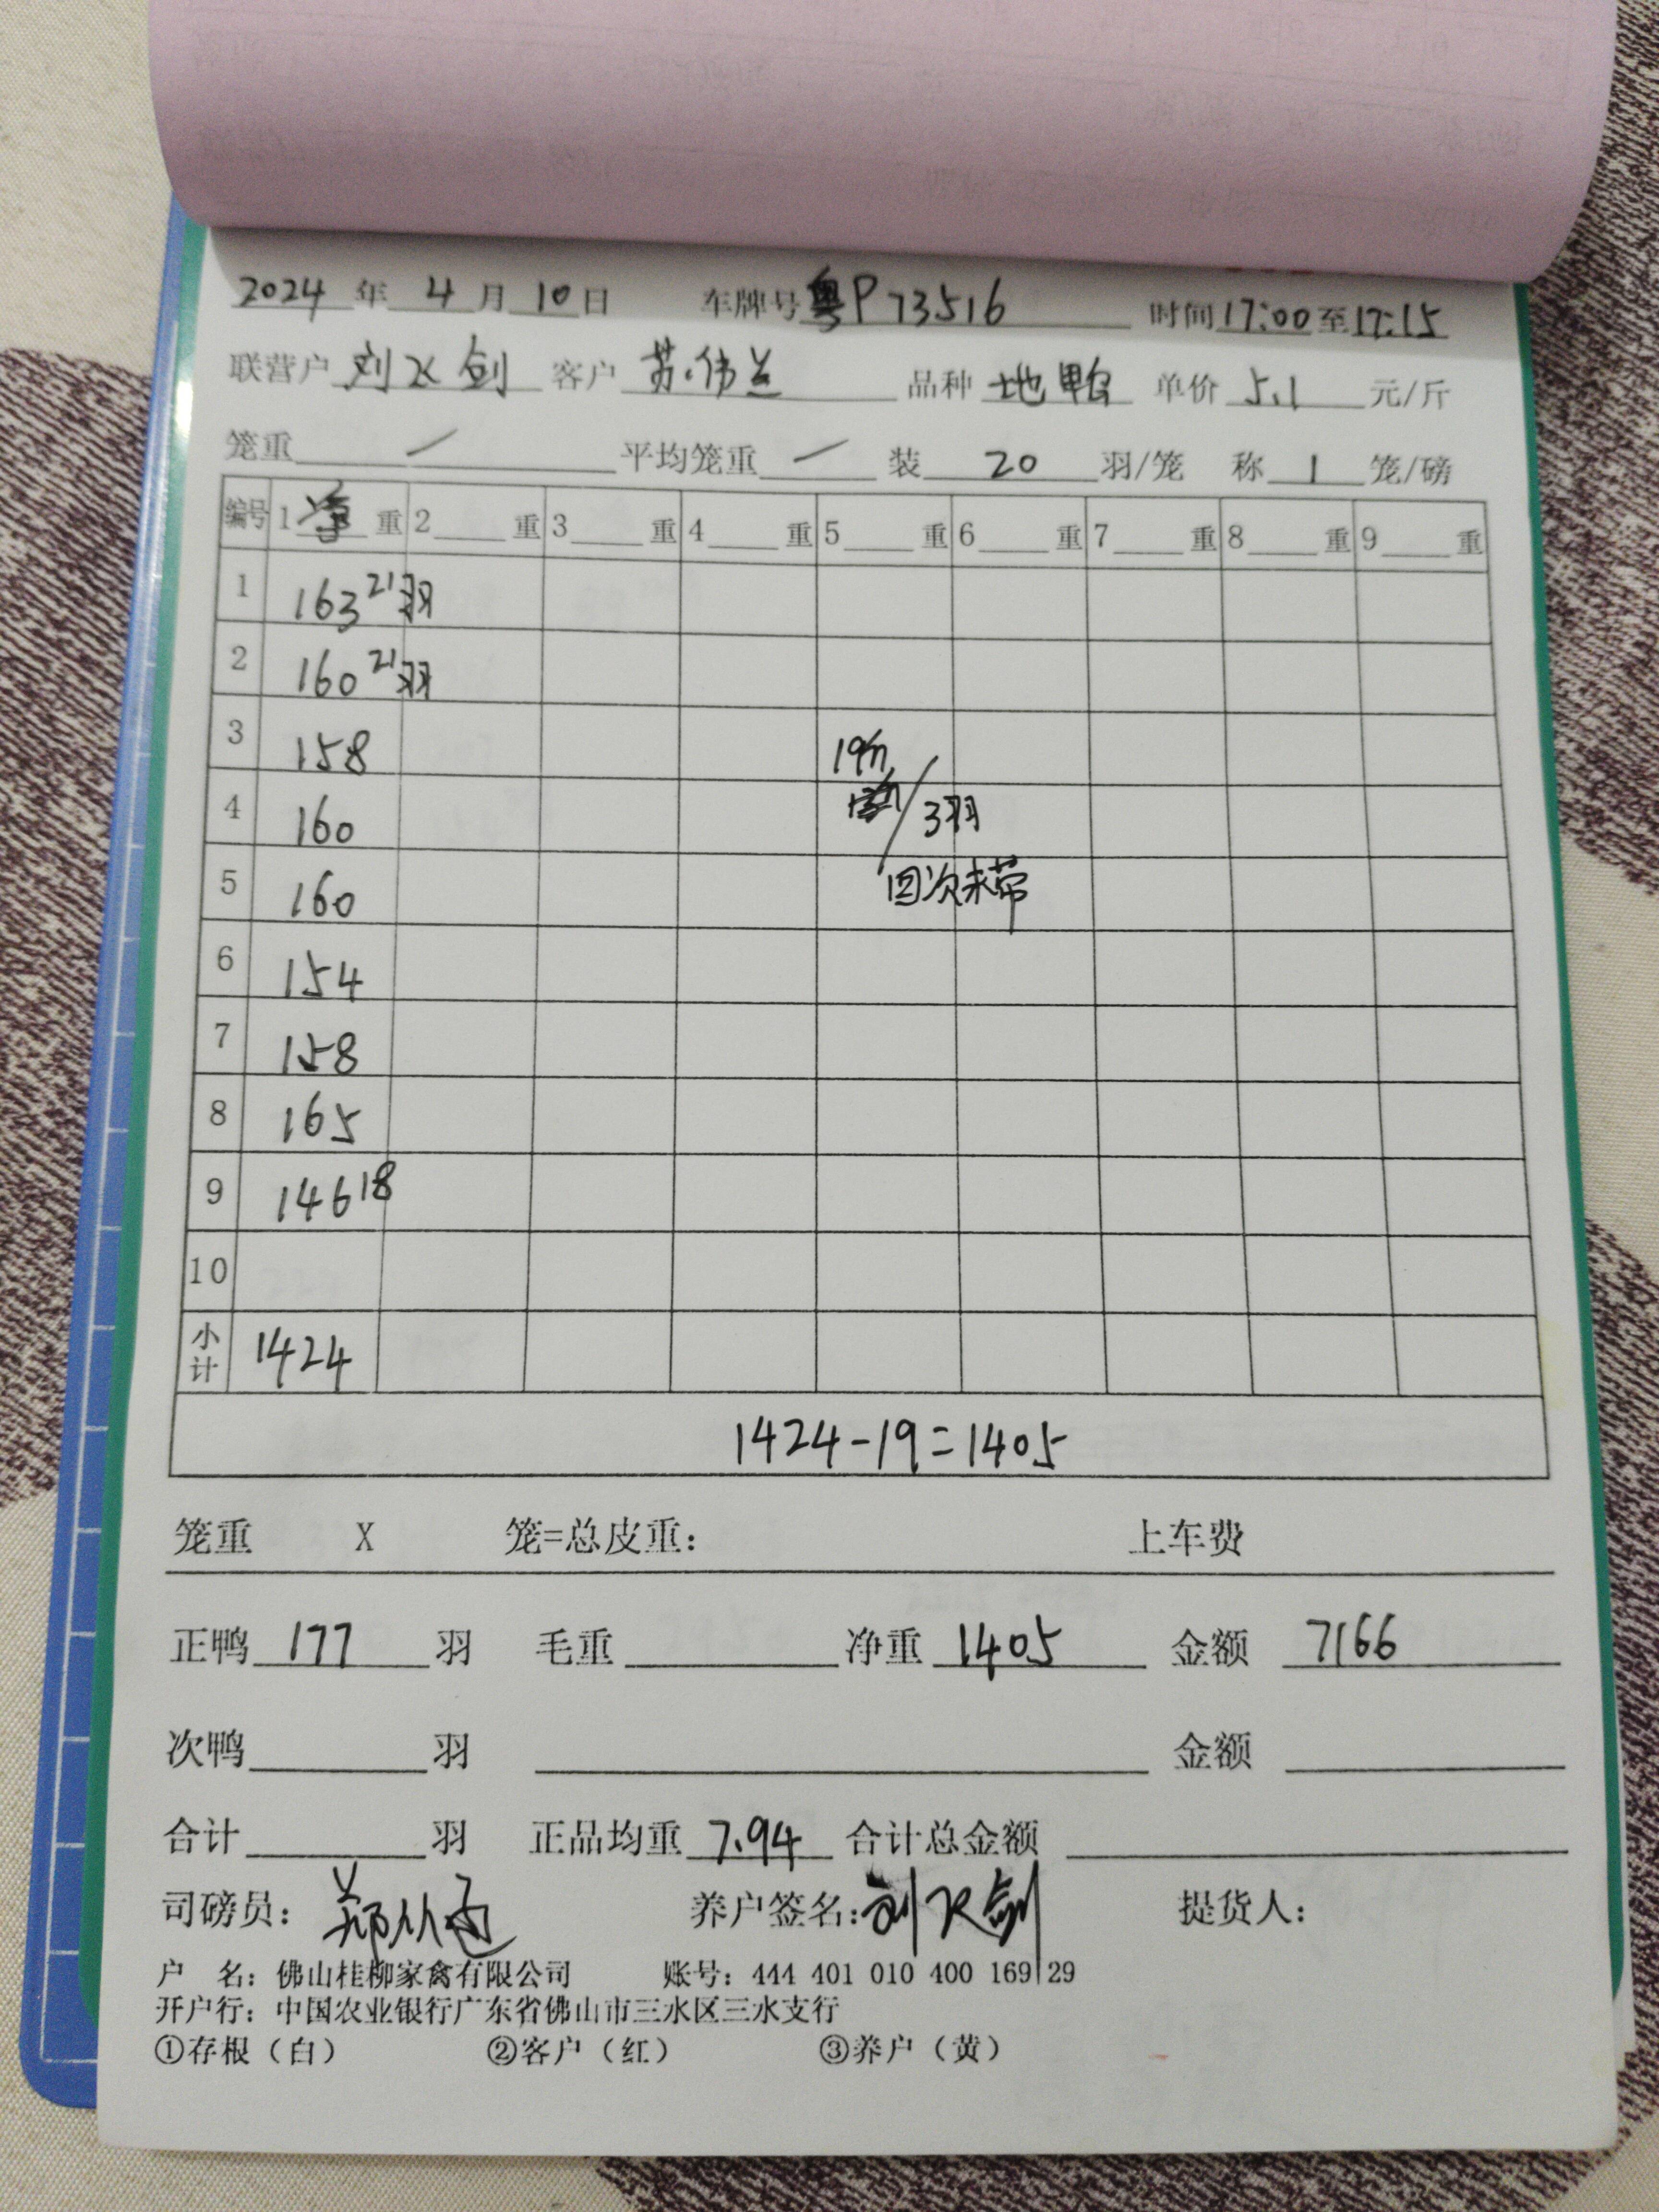 2024 年 4 月 10 日 车牌号 粤P73516 时间 17:00 至 17:15
联营户 刘飞剑 客户 苏伟兰 品种 地鸭 单价 5.1 元/斤
笼重 / 平均笼重 / 装 20 羽/笼 称 1 笼/磅
编号 1 净 重 2 重 3 重 4 重 5 重 6 重 7 重 8 重 9 重
1 163 21羽
2 160 21羽
3 158 19斤
4 160 /3羽
5 160 回次未带
6 154
7 158
8 165
9 146 18
10
小计 1424
1424-19=1405
笼重 X 笼=总皮重: 上车费
正鸭 177 羽 毛重 净重 1405 金额 7166
次鸭 羽 金额
合计 羽 正品均重 7.94 合计总金额
司磅员: 养户签名: 刘飞剑 提货人:
户 名: 佛山桂柳家禽有限公司 账号: 444 401 010 400 169 29
开户行: 中国农业银行广东省佛山市三水区三水支行
①存根（白） ②客户（红） ③养户（黄）